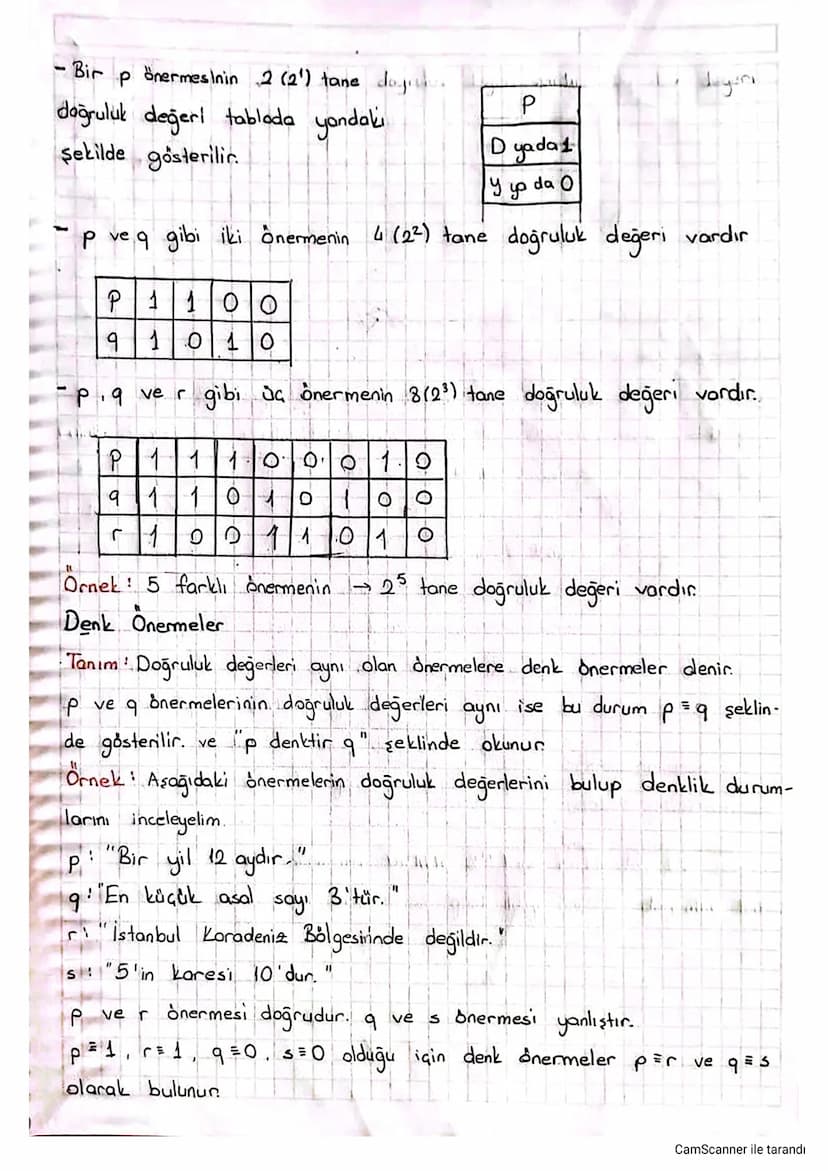 - Bir p önermesinin 2 (2¹) tane
doğruluk değeri tabloda yandaki
şekilde gösterilir.
P
D yada 1
Y ya da 0
- p ve q gibi iki önermenin 4 (2²) tane doğruluk değeri vardır
P 1 1 0 0
q 1 0 1 0
- p, q ve r gibi üç önermenin 8 (2³) tane doğruluk değeri vardır.
P 1 1 1 0 0 0 1 0
q 1 1 0 1 0 1 0 0
r 1 0 0 1 1 0 1 0
Örnek: 5 farklı önermenin → 2⁵ tane doğruluk değeri vardır.
Denk Önermeler
Tanım: Doğruluk değerleri aynı olan önermelere denk önermeler denir.
p ve q önermelerinin doğruluk değerleri aynı ise bu durum p ≡ q şeklin-
de gösterilir. ve "p denktir q" şeklinde okunur.
Örnek: Aşağıdaki önermelerin doğruluk değerlerini bulup denklik durum-
larını inceleyelim.
p: "Bir yil 12 aydır."
q: "En küçük asal sayı 3'tür."
r: "İstanbul Karadeniz Bölgesirinde değildir."
s: "5'in karesi 10'dur."
p ve r önermesi doğrudur. q ve s önermesi yanlıştır.
p ≡ 1, r ≡ 1, q ≡ 0, s ≡ 0 olduğu için denk önermeler p ≡ r ve q ≡ s
olarak bulunur.
CamScanner ile tarandı